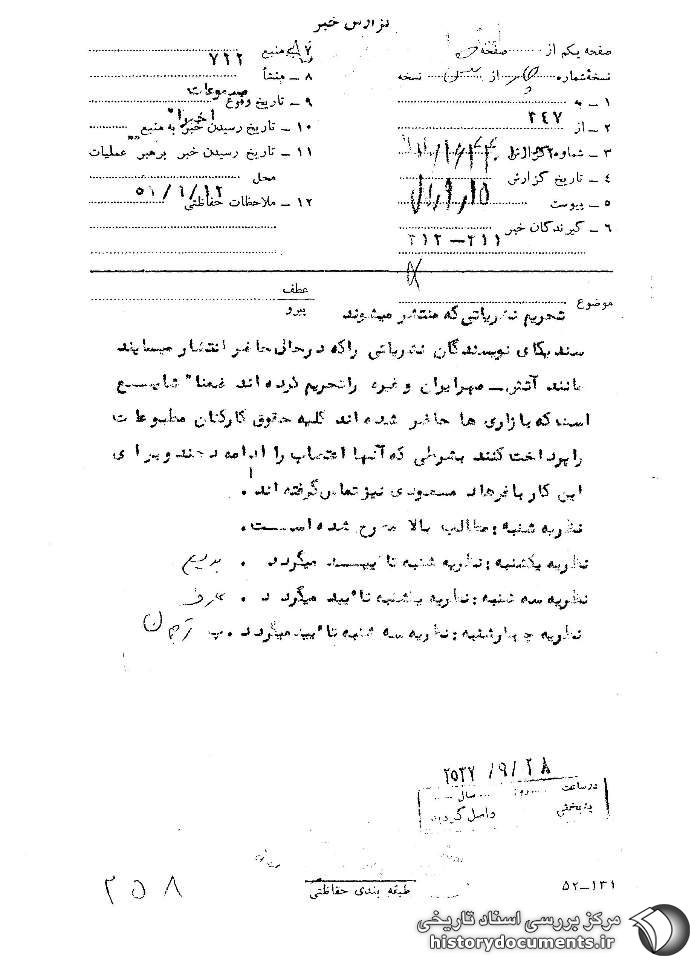 گزارش خبر
صفحه یکم از صفحه
نسخه شماره از نسخه
۱ ـ به
۲ ـ از ۲۴۷
۳ ـ شماره گزارش
۴ ـ تاریخ گزارش
۵ ـ پیوست
۶ ـ گیرندگان خبر
۳۱۲-۳۱۱
۷ ـ منبع ۷۲۲
۸ ـ منشأ
۹ ـ تاریخ وقوع
۱۰ ـ تاریخ رسیدن خبر به منبع
۱۱ ـ تاریخ رسیدن خبر برهبر عملیات
محل
۱۲ ـ ملاحظات حفاظتی
موضوع
عطف
پیرو
تحریم نشریاتی که منتشر میشوند
سندیکای نویسندگان نشریاتی راکه درحال حاضر انتشار مییابند
مانند آتش ـ مهرایران و غیره راتحریم کرده اند ضمنا" شایع
است که بازاری ها حاضر شده اند کلیه حقوق کارکنان مطبوعات
را پرداخت کنند بشرطی که آنها اعتصاب را ادامه دهند و برای
این کار با فرهاد مسعودی نیز تماس گرفته اند.
نظریه شنبه : مطالب بالا شده است.
نظریه یکشنبه : نظریه شنبه تائید میگردد .
نظریه سه شنبه : نظریه یکشنبه تائید میگردد . عارف
نظریه چهارشنبه : نظریه سه شنبه تائید میگردد .
۲۵۳۷/۹/۲۸
در ساعت روز سال
به بخش واصل گردید
طبقه بندی حفاظتی
۵۲-۱۳۱
۲۵۸
مرکز بررسی اسناد تاریخی
historydocuments.ir